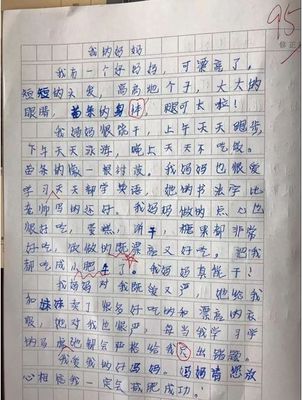 95
我的妈妈
我有一个好妈妈，可漂亮了，
短短的头发，高高地个子，大大的
眼睛，苗条的身体，腿可长啦！
我妈妈很能干，上午天天跑步，
下午天天游泳，晚上天天不吃饭。
苗条的像一根
我妈妈也很爱
学习，天天都学英语，她的书法字比
老师写的还好。我妈妈做的点心也
很好吃，蛋糕，饼干，糖果都非常
好吃，做做的既漂亮又好吃，把我
都吃成小肥
了。我妈妈真能干！
我妈妈对我既爱又严，她给我
和妹妹买了很多好吃的和漂亮的衣
服，她对我也很严，每当我学习学
的马虎她都会严格给我
出错误。
我爱我的好妈妈。妈妈请您放
心相信我一定气减肥成功！